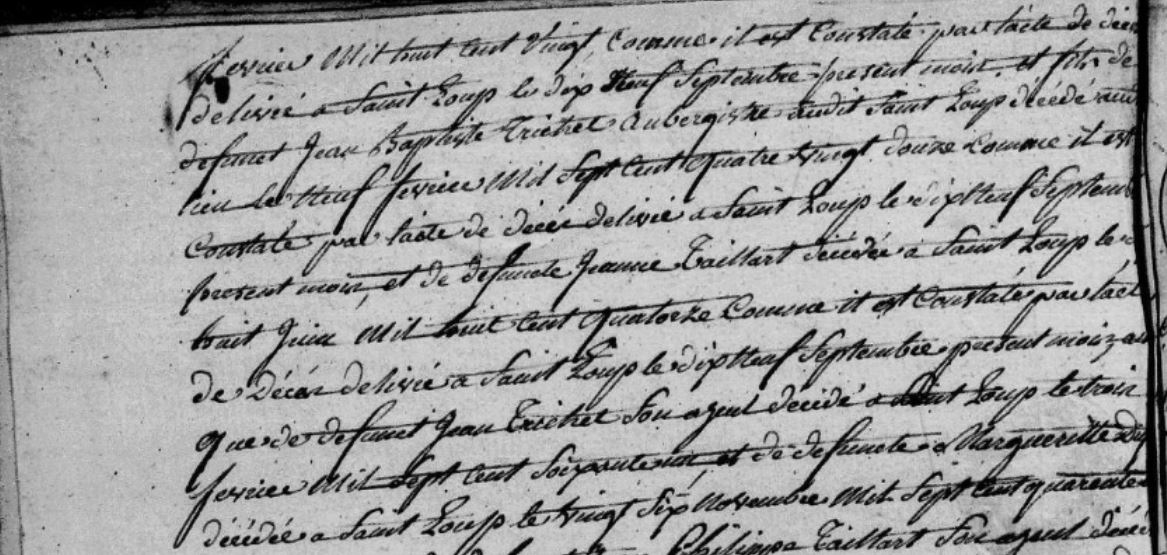 fevrier Mil huit Cent Vingt, Comme il est Constaté par l'acte de décès
delivré a Saint Loup le dix Neuf Septembre present mois, et fils de
defunct Jean Baptiste Trichet Aubergiste audit Saint Loup décédé audit
lieu le Neuf fevrier Mil Sept Cent quatre Vingt douze Comme il est
Constaté par l'acte de décès delivré a Saint Loup le dix Neuf Septembre
present mois, et de defuncte Jeanne Taillart décédée a Saint Loup le
huit Juin Mil huit Cent quatorze Comme il est Constaté par l'acte
de Décès delivré a Saint Loup le dix Neuf Septembre present mois, ainsi
que de defunct Jean Trichet Son ayeul décidé a Saint Loup le trois
fevrier Mil Sept Cent Soixante un, et de defuncte Margueritte
décédée a Saint Loup le Vingt Six Novembre Mil Sept Cent quarente
Philippe Taillart Son ayeul décédé